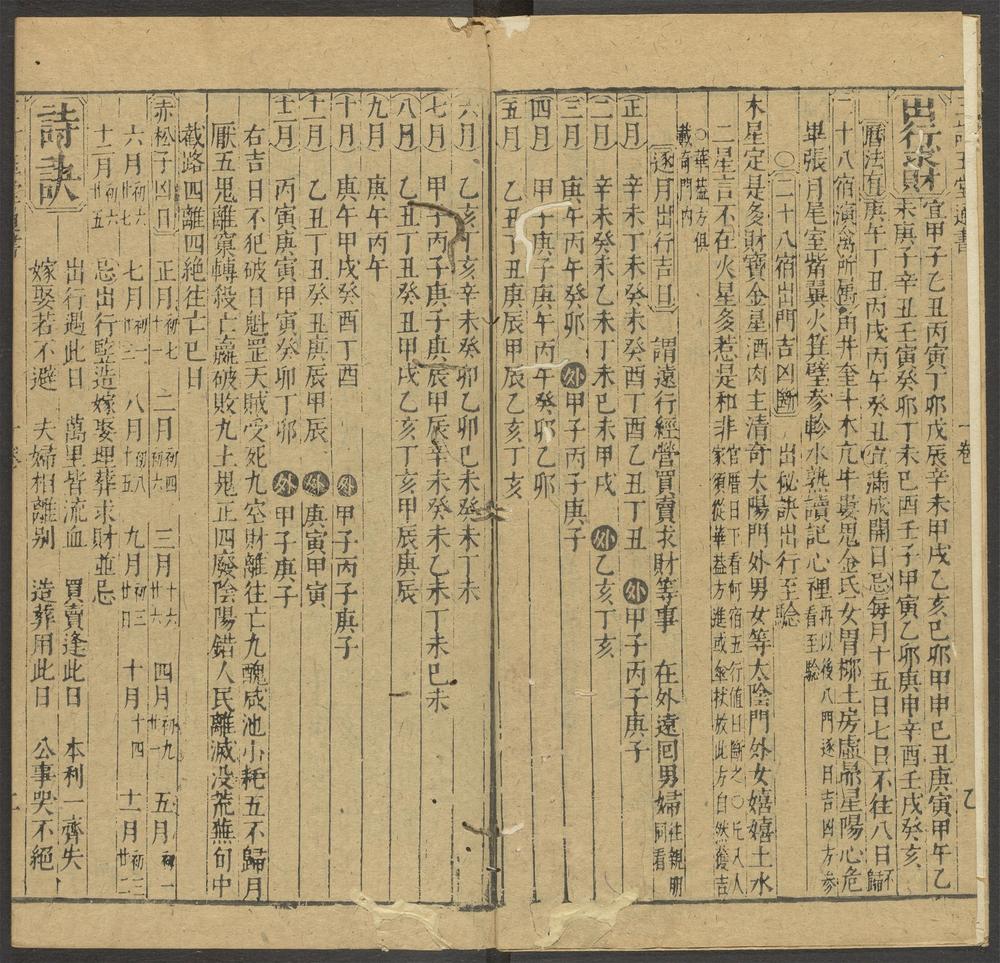 出行求財
宜甲子乙丑丙寅丁卯戊辰辛未甲戌乙亥己卯甲申己丑庚寅甲午乙
未庚子辛丑壬寅癸卯丁未己酉壬子甲寅乙卯庚申辛酉壬戌癸亥
曆法有庚午丁丑丙戌丙午癸丑宜滿成開日忌每月十五日七日不往八日不歸
二十八宿演禽所屬角井奎斗木亢牛婁鬼金氐女胃柳土房虛昴星陽心危
畢張月尾室觜翼火箕壁參軫水熟讀記心裡再以後八門逐日吉凶方參看至驗
〇二十八宿出門吉凶斷 出秘訣出行至驗
木星定是多財寶金星酒肉主清奇太陽門外男女等太陰門外女嬉嬉土水
二星言不在火星多惹是和非官曆日下看何宿五行值日斷之〇凡人人家須從華蓋方進或傘杖放此方自然獲吉
〇華蓋方俱載奇門內
逐月出行吉日 謂遠行經營買賣求財等事 在外遠回男婦往親朋同看
正月 辛未丁未癸未癸酉丁酉乙丑丁丑 外甲子丙子庚子
二月 辛未癸未乙未丁未己未甲戌 外乙亥丁亥
三月 庚午丙午癸卯 外甲子丙子庚子
四月 甲子庚子庚午丙午癸卯乙卯
五月 乙丑丁丑庚辰甲辰乙亥丁亥
六月 乙亥丁亥辛未癸卯乙卯己未癸未丁未
七月 甲子丙子庚子庚辰甲辰辛未癸未乙未丁未己未
八月 乙丑丁丑癸丑甲戌乙亥丁亥甲辰庚辰
九月 庚午丙午
十月 庚午甲戌癸酉丁酉 外甲子丙子庚子
十一月 乙丑丁丑癸丑庚辰甲辰 外庚寅甲寅
十二月 丙寅庚寅甲寅癸卯丁卯 外甲子庚子
右吉日不犯破日魁罡天賊受死九空財離往亡九醜咸池小耗五不歸月
厭五鬼離窠轉殺亡贏破敗九土鬼正四廢陰陽錯人民離滅没荒蕪旬中
截路四離四絕往亡已日
赤松子凶日 正月初七十一 二月初四初六 三月十六廿六 四月初九廿一 五月初一
六月初六廿七 七月初二 八月初八十五 九月初三廿日 十月十四 十一月初三廿二
十二月初六廿五 忌出行竪造嫁娶埋葬求財並忌
詩訣
出行遇此日 萬里皆流血 買賣逢此日 本利一齊失
嫁娶若不避 夫婦相離别 造葬用此日 公事哭不絕
一卷